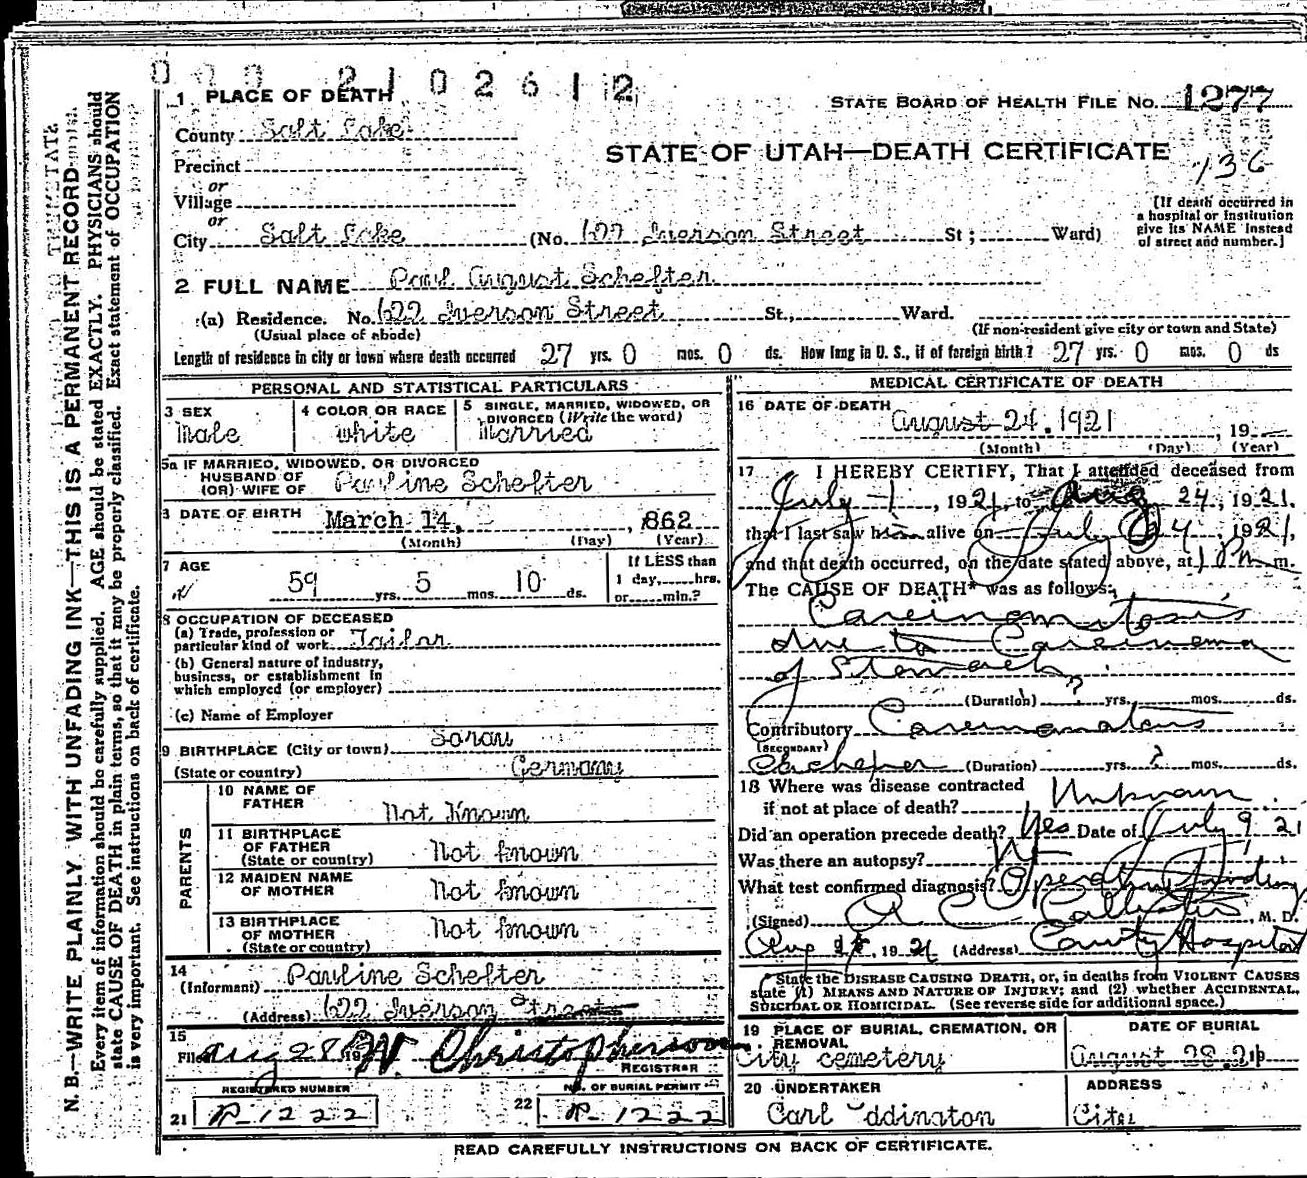 0 0 0 2 1 0 2 6 1 2
1 PLACE OF DEATH
STATE BOARD OF HEALTH FILE NO. 1277
County Salt Lake
STATE OF UTAH—DEATH CERTIFICATE
136
Precinct
or
Village
or
City Salt Lake (No. 622 Iverson Street St; Ward)
[If death occurred in
a hospital or institution
give its NAME instead
of street and number.]
2 FULL NAME Paul August Schefter
(a) Residence. No. 622 Iverson Street St., Ward.
(Usual place of abode) (If non-resident give city or town and State)
Length of residence in city or town where death occurred 27 yrs. 0 mos. 0 ds. How long in U. S., if of foreign birth? 27 yrs. 0 mos. 0 ds
PERSONAL AND STATISTICAL PARTICULARS
3 SEX
Male
4 COLOR OR RACE
White
5 SINGLE, MARRIED, WIDOWED, OR
DIVORCED (Write the word)
Married
5a IF MARRIED, WIDOWED, OR DIVORCED
HUSBAND OF
(OR) WIFE OF Pauline Schefter
DATE OF BIRTH March 14, 862
(Month) (Day) (Year)
7 AGE
59 yrs. 5 mos. 10 ds.
If LESS than
1 day, hrs.
or min.?
8 OCCUPATION OF DECEASED
(a) Trade, profession or
particular kind of work Tailor
(b) General nature of industry,
business, or establishment in
which employed (or employer)
(c) Name of Employer
9 BIRTHPLACE (City or town) Sorau
(State or country) Germany
PARENTS
10 NAME OF
FATHER Not Known
11 BIRTHPLACE
OF FATHER
(State or country) Not known
12 MAIDEN NAME
OF MOTHER Not known
13 BIRTHPLACE
OF MOTHER
(State or country) Not known
14
(Informant) Pauline Schefter
(Address) 622 Iverson Street
15
Filed Aug 28 19 W. Christopherson
REGISTRAR
REGISTERED NUMBER
21 P-1222
NO. OF BURIAL PERMIT
22 P-1222
MEDICAL CERTIFICATE OF DEATH
16 DATE OF DEATH
August 24. 1921, 19
(Month) (Day) (Year)
17 I HEREBY CERTIFY, That I attended deceased from
July 1, 1921, to Aug 24, 1921,
that I last saw him alive on July 24, 1921,
and that death occurred, on the date stated above, at 1 P m.
The CAUSE OF DEATH* was as follows:
Carcinomatosis
due to Carcinoma
of Stomach
(Duration) ? yrs. mos. ds.
Contributory Carcinomatous
(SECONDARY)
(Duration) yrs. ? mos. ds.
18 Where was disease contracted
if not at place of death? Unknown
Did an operation precede death? Yes Date of July 9, 21
Was there an autopsy?
What test confirmed diagnosis? Operation Findings
(Signed) A C Callister, M. D.
Aug, 1921 (Address) County Hospital
*State the DISEASE CAUSING DEATH, or, in deaths from VIOLENT CAUSES
state (1) MEANS AND NATURE OF INJURY; and (2) whether ACCIDENTAL,
SUICIDAL OR HOMICIDAL. (See reverse side for additional space.)
19 PLACE OF BURIAL, CREMATION, OR
REMOVAL
City cemetery
DATE OF BURIAL
August 28.21
20 UNDERTAKER
Carl ddington
ADDRESS
City
READ CAREFULLY INSTRUCTIONS ON BACK OF CERTIFICATE.
N. B.—WRITE PLAINLY WITH UNFADING INK—THIS IS A PERMANENT RECORD
Every item of information should be carefully supplied. AGE should be stated EXACTLY. PHYSICIANS should
state CAUSE OF DEATH in plain terms, so that it may be properly classified. Exact statement of OCCUPATION
is very important. See instructions on back of certificate.